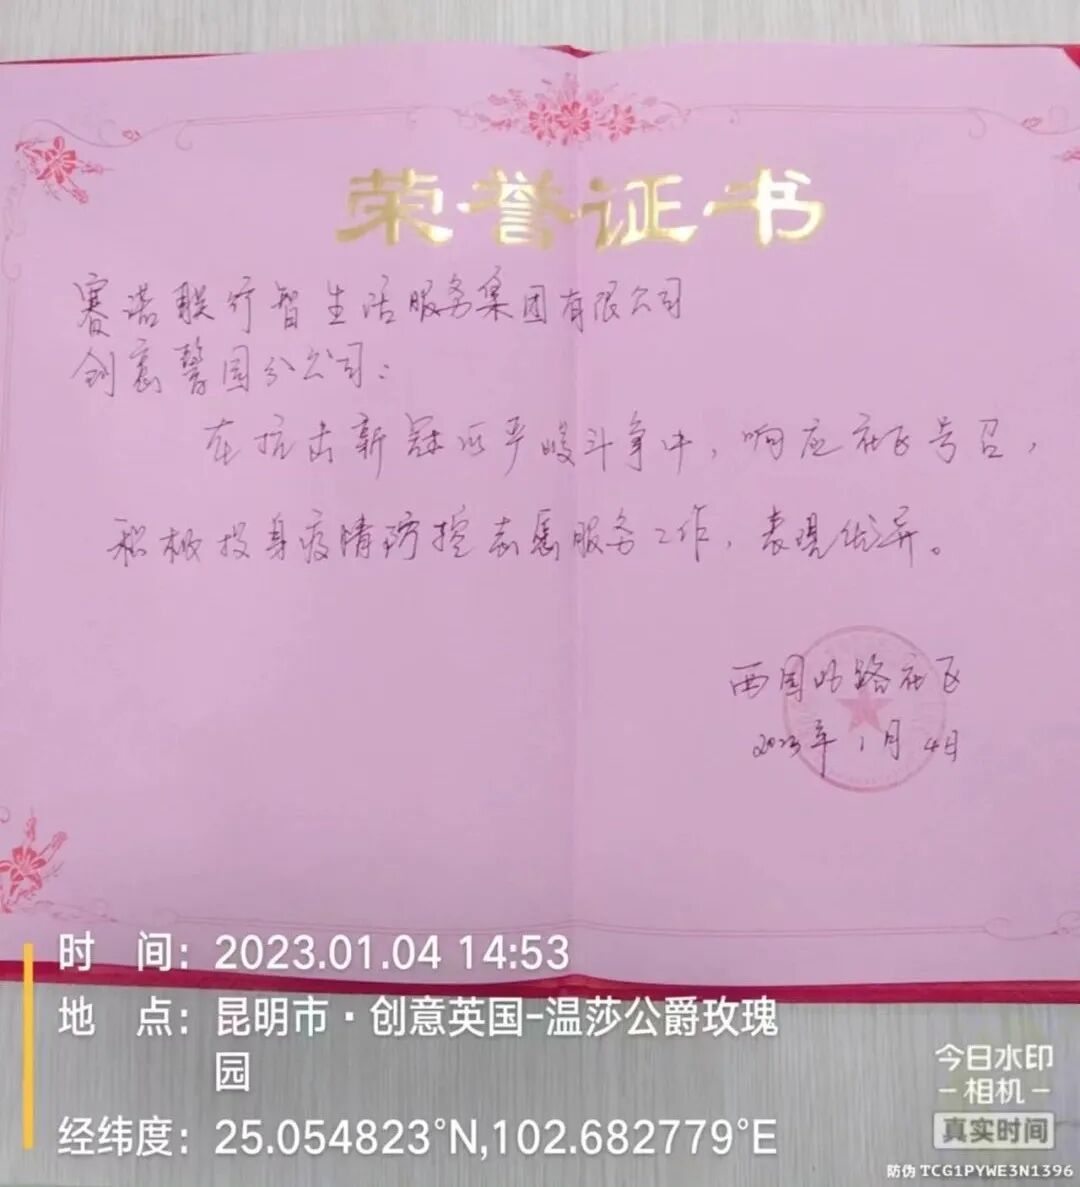 荣誉证书
赛诺联行智生活服务集团有限公司
创意馨园分公司：
在抗击新冠的严峻斗争中，响应社区号召，
积极投身疫情防控志愿服务工作，表现优异。
西园北路社区
2023年1月4日
时 间：2023.01.04 14:53
地 点：昆明市·创意英国-温莎公爵玫瑰
园
经纬度：25.054823°N,102.682779°E
今日水印
-相机-
真实时间
防伪 TCG1PYWE3N1396